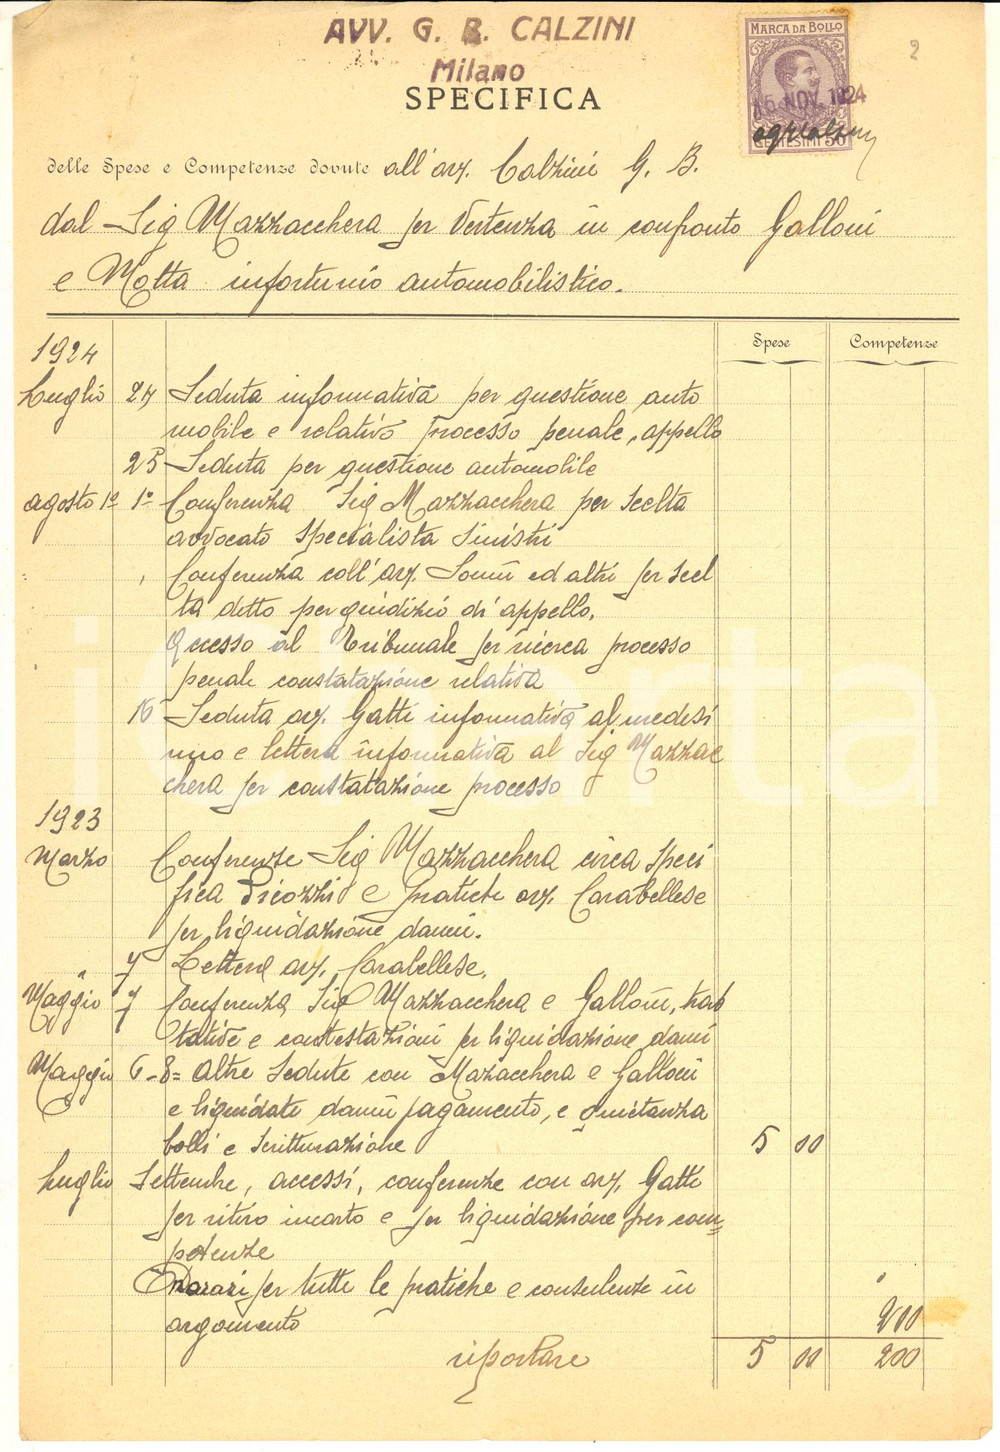 AVV. G. B. CALZINI
Milano
MARCA DA BOLLO
15 NOV. 1924
CENTESIMI 50
2
SPECIFICA
delle Spese e Competenze dovute all'avv. Calzini G. B.
dal Sig Mazzacchera per Vertenza in confronto Galloni
e Motta infortunio automobilistico.
Spese Competenze
1924
Luglio 24 Seduta informativa per questione auto
mobile e relativo processo penale, appello
25 Seduta per questione automobile
Agosto 1º 1º Conferenza Sig Mazzacchera per scelta
avvocato specialista sinistri
Conferenza coll'avv. ed altri per scel
ta detto per giudizio di appello.
Accesso al Tribunale per ricerca processo
penale constatazione relativa
16 Seduta avv. Gatti informativa al medesi
mo e lettera informativa al Sig Mazzac
chera per constatazione processo
1923
Marzo Conferenze Sig Mazzacchera circa speci
fica Picozzi e pratiche avv. Carabellese
per liquidazione danni.
" 7 Lettera avv. Carabellese.
Maggio 7 Conferenza Sig Mazzacchera e Galloni, trat
tative e contestazioni per liquidazione danni
Maggio 6-8= Altre sedute con Mazacchera e Galloni
e liquidati danni pagamento, e quietanza
bolli e scritturazione 5 00
Luglio Settembre, accessi, conferenze con avv. Gatti
per ritiro incarto e per liquidazione per com=
petenze
Onorari per tutte le pratiche e consulenze in
argomento 200
riportare 5 00 200